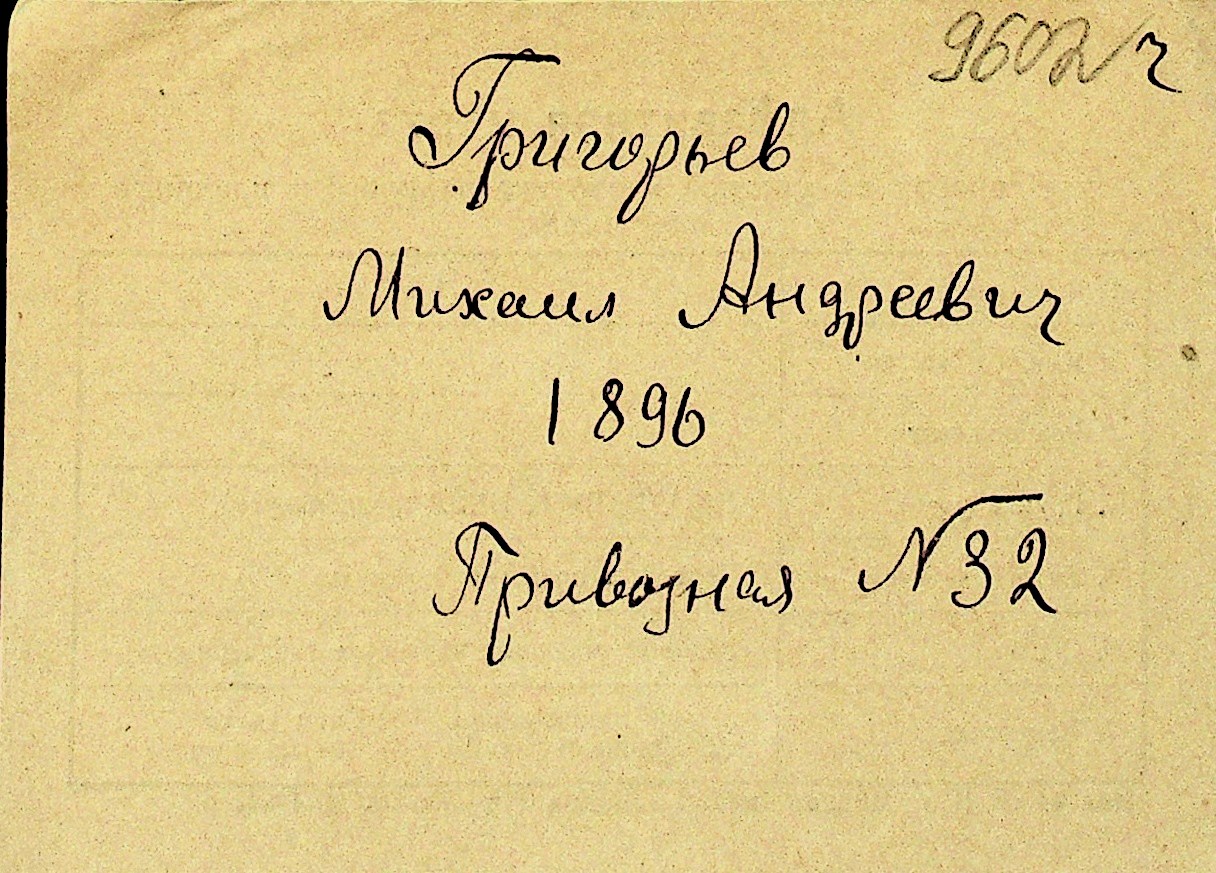 9602 ч
Григорьев
Михаил Андреевич
1896
Приводная № 32